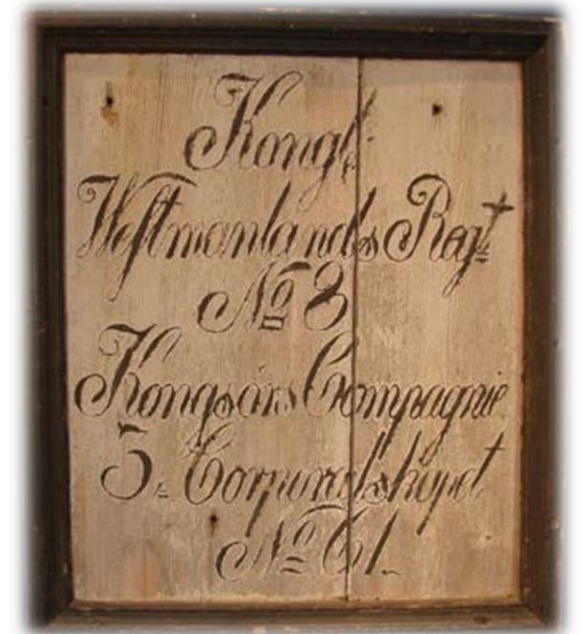 Kongl:
Westmanlands Regt
No 8
Kongsörs Compagnie
5. Corporalskapet
No 61.